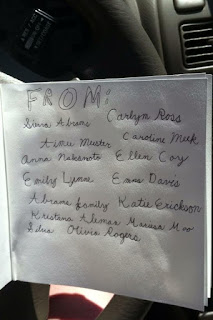 FROM:
Sierra Abrams Carlym Ross
Aimee Muster Caroline Meek
Anna Nakamoto Ellen Coy
Emily Lynne Emma Davis
Abrams family Katie Erickson
Kristana Aleman Marissa Moo
Silvia Olivia Rogers